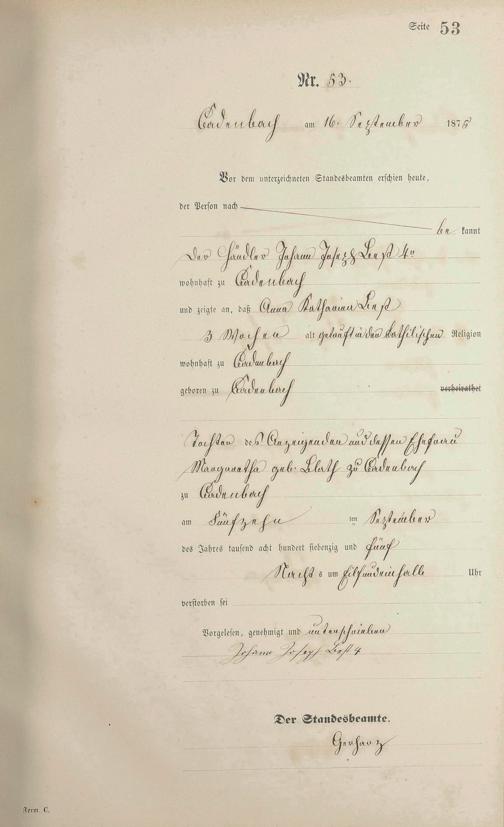 Seite 53
Nr. 53.
Cadenbach am 16. September 1875
Vor dem unterzeichneten Standesbeamten erschien heute,
der Person nach
be kannt
der Händler Johann Joseph Best 4r
wohnhaft zu Cadenbach
und zeigte an, daß Anna Katharina Best
3 Wochen alt getauft in der katholischen Religion
wohnhaft zu Cadenbach
geboren zu Cadenbach verheirathet
Tochter des Anzeigenden und dessen Ehefrau
Margaretha geb. zu Cadenbach
zu Cadenbach
am Fünfzehn ten September
des Jahres tausend acht hundert siebenzig und fünf
Nachts um Uhr
verstorben sei
Vorgelesen, genehmigt und unterschrieben
Johann Joseph Best 4
Der Standesbeamte.
Gerharz
Form. C.